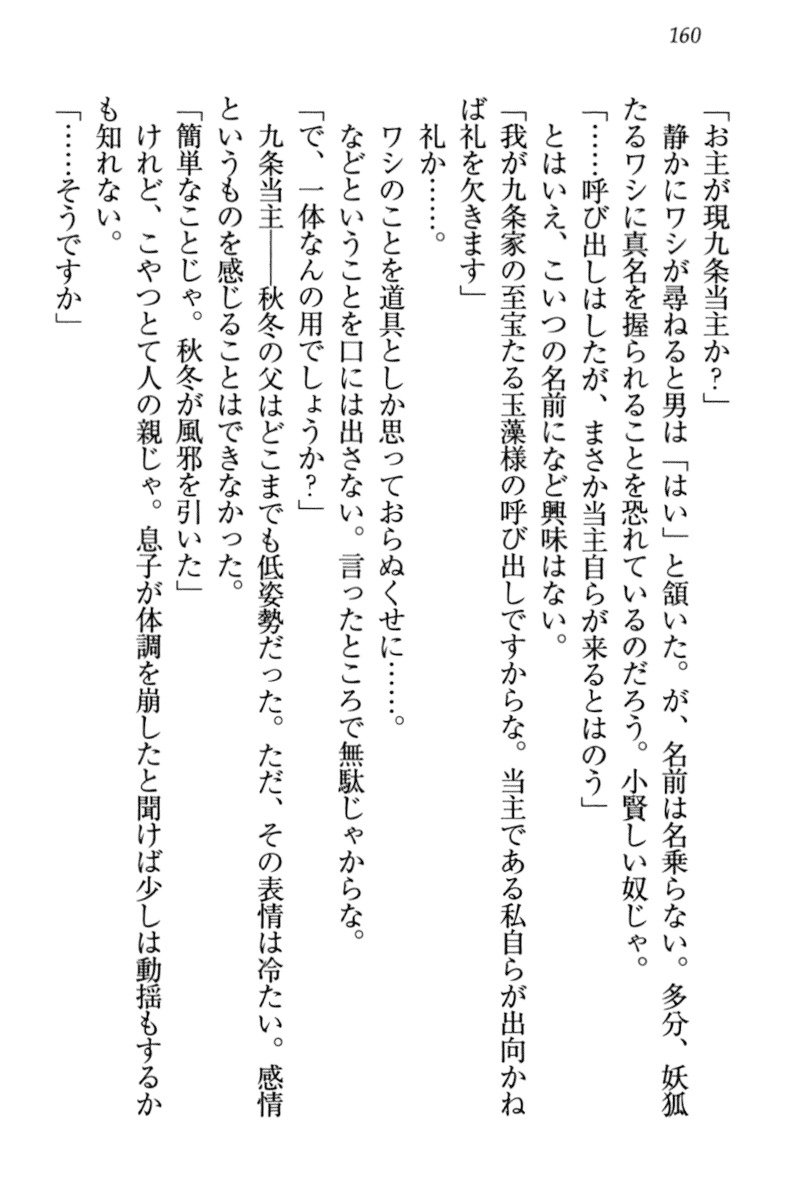 160
「お主が現九条当主か？」
静かにワシが尋ねると男は「はい」と頷いた。が、名前は名乗らない。多分、妖狐
たるワシに真名を握られることを恐れているのだろう。小賢しい奴じゃ。
「……呼び出しはしたが、まさか当主自らが来るとはのう」
とはいえ、こいつの名前になど興味はない。
「我が九条家の至宝たる玉藻様の呼び出しですからな。当主である私自らが出向かね
ば礼を欠きます」
礼か……。
ワシのことを道具としか思っておらぬくせに……。
などということを口には出さない。言ったところで無駄じゃからな。
「で、一体なんの用でしょうか？」
九条当主――秋冬の父はどこまでも低姿勢だった。ただ、その表情は冷たい。感情
というものを感じることはできなかった。
「簡単なことじゃ。秋冬が風邪を引いた」
けれど、こやつとて人の親じゃ。息子が体調を崩したと聞けば少しは動揺もするか
も知れない。
「……そうですか」